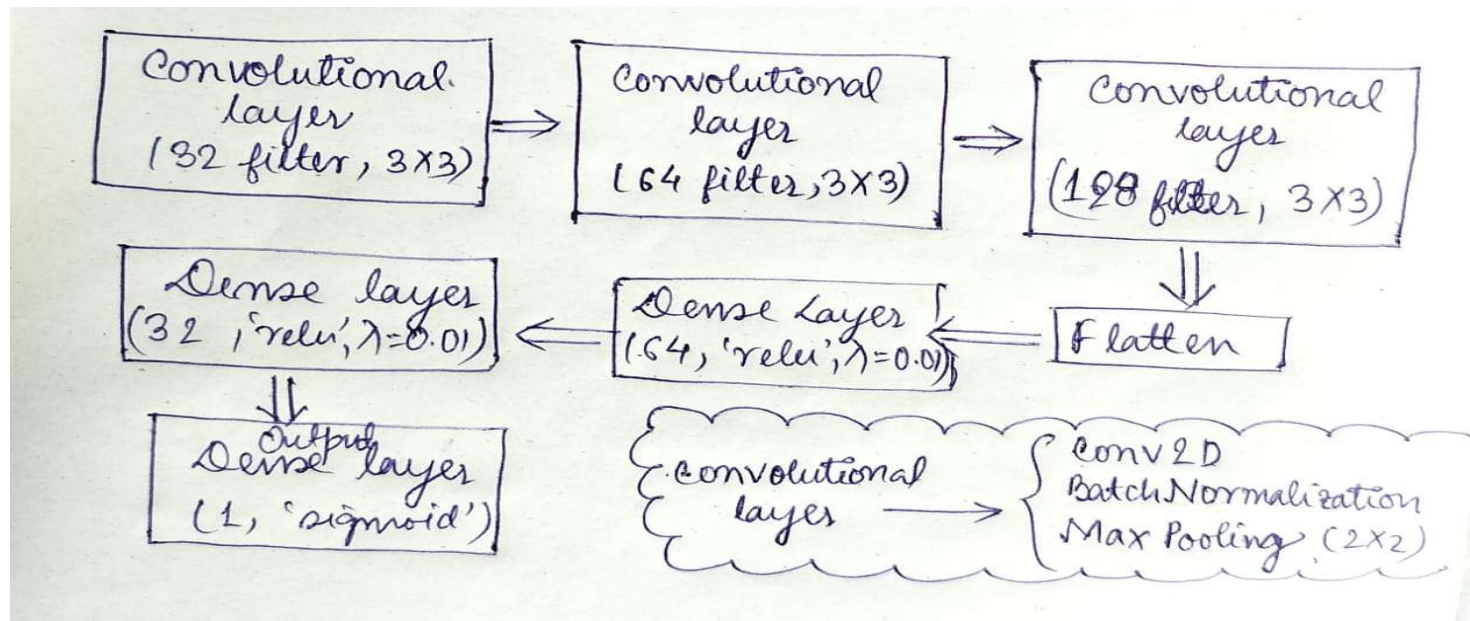 Convolutional
layer
(32 filter, 3x3)
Convolutional
layer
(64 filter, 3x3)
Convolutional
layer
(128 filter, 3x3)
Flatten
Dense Layer
(64, 'relu', λ=0.01)
Dense layer
(32, 'relu', λ=0.01)
Output
Dense layer
(1, 'sigmoid')
Convolutional
layer
Conv2D
Batch Normalization
Max Pooling (2x2)